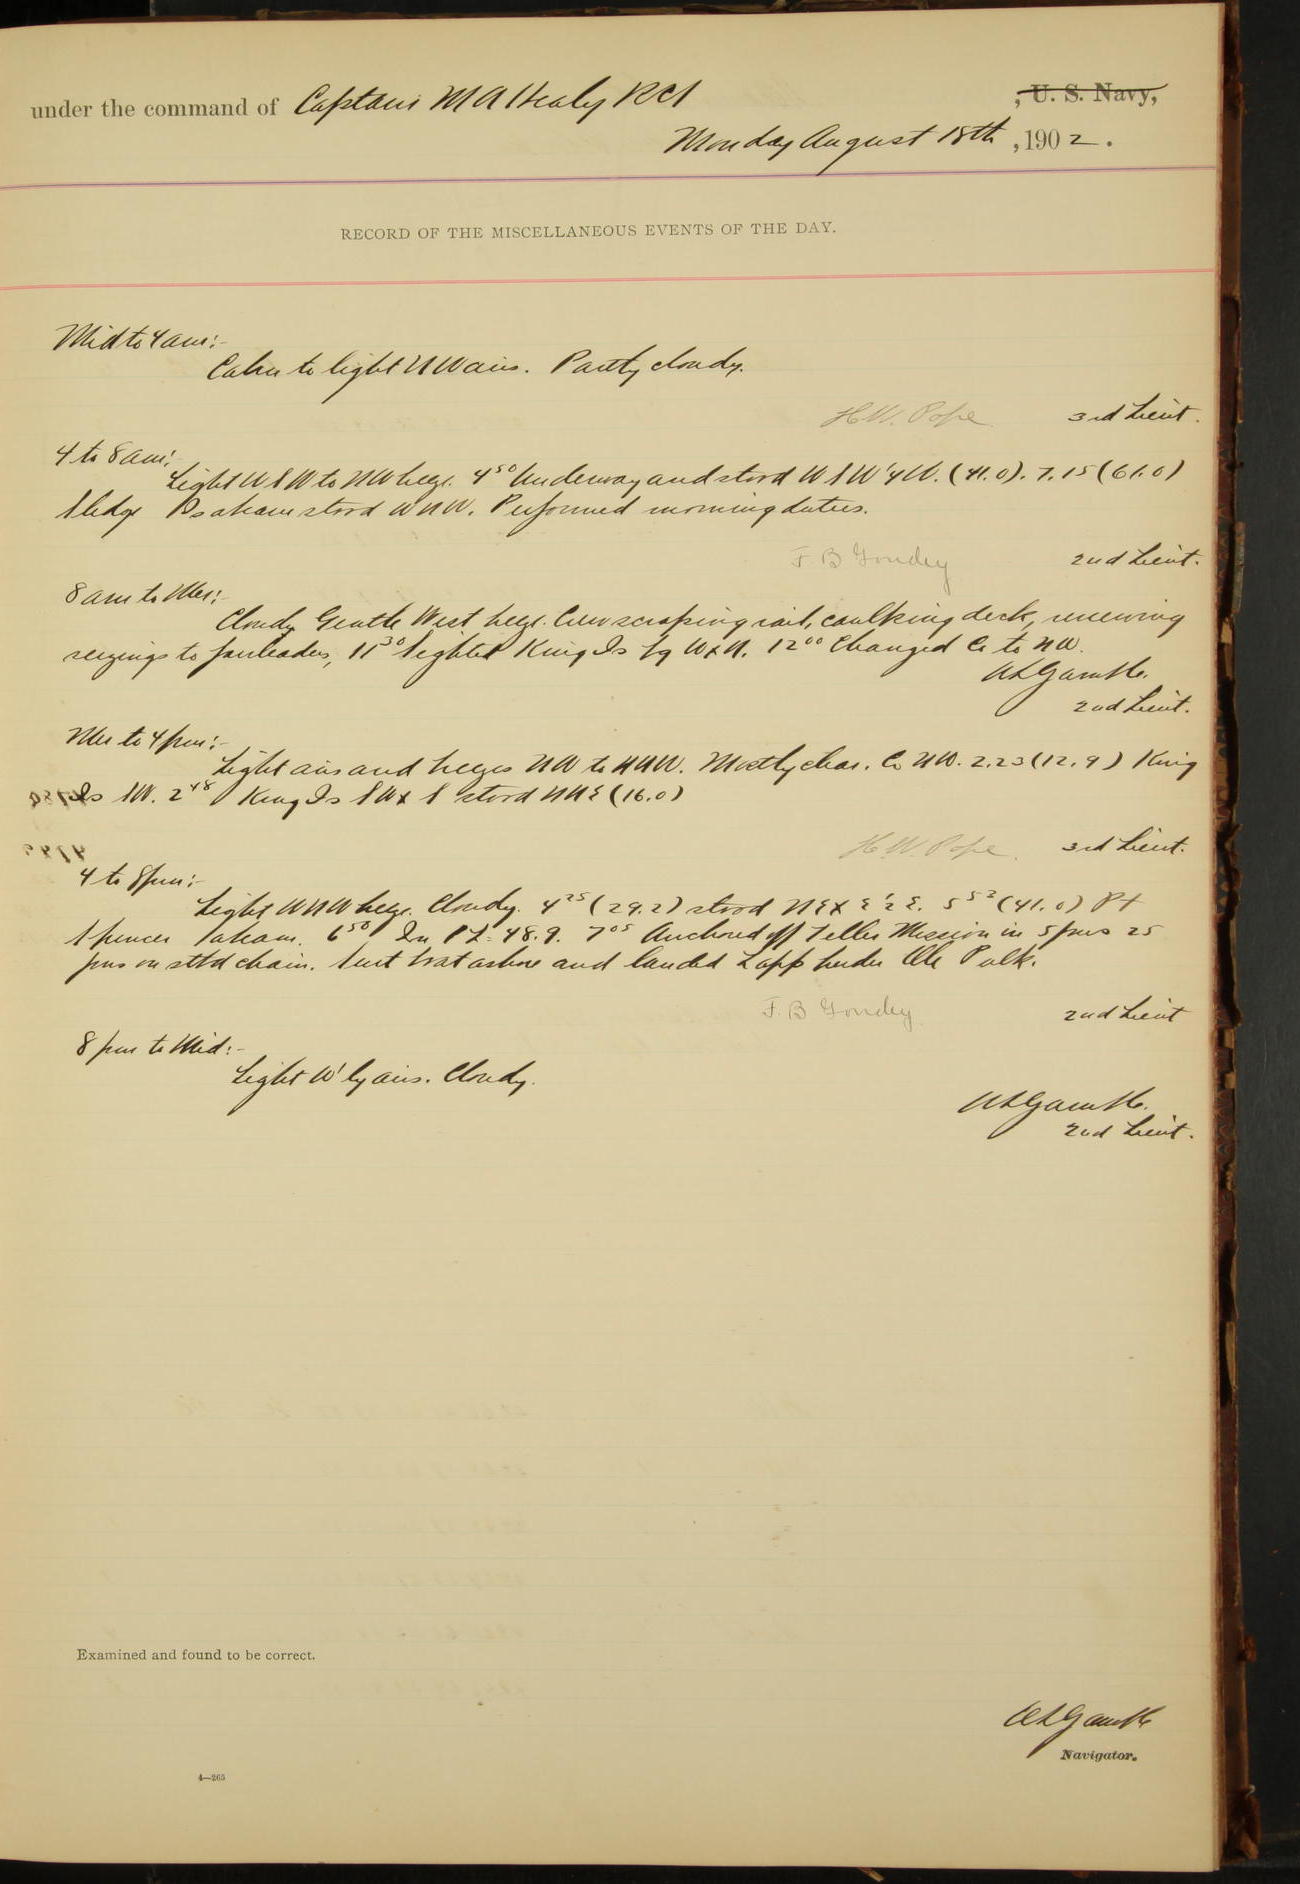 under the command of Captain M A Healy RCS , U. S. Navy,
Monday August 18th , 1902.
RECORD OF THE MISCELLANEOUS EVENTS OF THE DAY.
Mid to 4 am:-
Calm to light NW airs. Partly cloudy.
H.W. Pope 3rd Lieut.
4 to 8 am:
Light WSW to NW breeze. 4 50 Underway and stood WSW 1/4 W. (41.0). 7.15 (61.0)
Sledge Is abeam stood WNW. Performed morning duties.
F B Goudey 2nd Lieut.
8 am to Mer:-
Cloudy Gentle West breeze. Crew scraping rail, caulking deck, renewing
seizings to fairleaders, 11 30 Sighted King Is brg WxN. 12 00 Changed Co to NW.
A L Gamble.
2nd Lieut.
Mer to 4 pm:-
Light airs and breezes NW to NNW. Mostly clear. Co NW. 2.23 (12.9) King
Is SW. 2 48 King Is SWxS stood NNE (16.0)
H.W. Pope. 3rd Lieut.
4 to 8 pm:-
Light WNW breeze. Cloudy. 4 25 (29.2) stood NExE 1/2 E. 5 52 (41.0) Pt
Spencer abeam. 6 50 In PL. 48.9. 7 05 Anchored off Teller Mission in 5 fms 25
fms on stbd chain. Sent boat ashore and landed Lapp herder Ole Pulk.
F. B Goudey 2nd Lieut
8 pm to Mid:-
Light W'ly airs. Cloudy.
A L Gamble.
2nd Lieut.
Examined and found to be correct.
A L Gamble
Navigator.
4—265